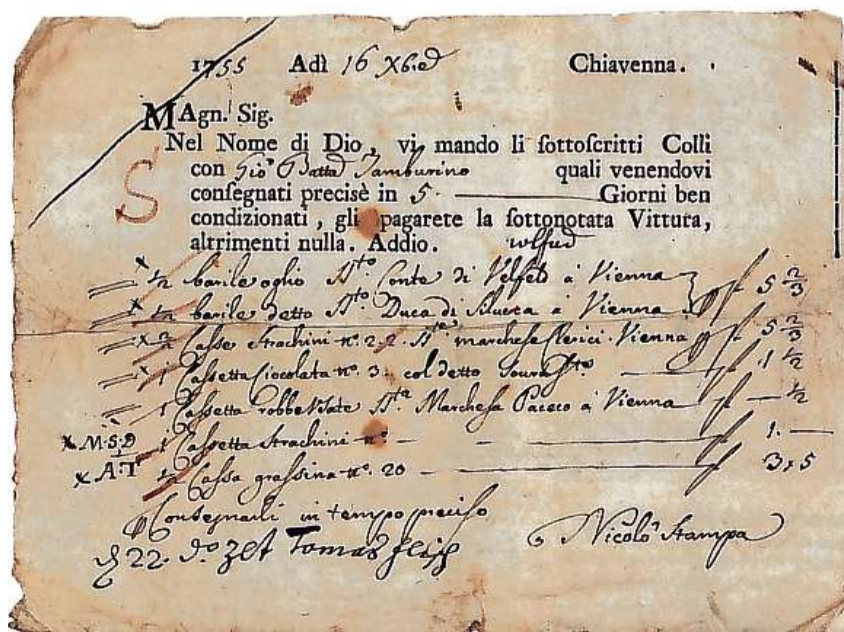 1755 Adì 16 Xb.e Chiavenna.
MAgn. Sig.
S
Nel Nome di Dio, vi mando li ſottoſcritti Colli
con Gio Batta Tamburino quali venendovi
conſegnati precisè in 5. Giorni ben
condizionati, gli pagarete la ſottonotata Vittura,
altrimenti nulla. Addio.
x ½ barile oglio Conte di Velfeld à Vienna 5 ⅔
x ½ barile detto Duca di à Vienna
x 2 Casse Strachini n.° 22 marchese Clerici Vienna 5 ⅔
x 1 Cassetta Ciocolata n.° 3 col detto Soura 1 ½
1 Cassetta robbe Marchesa Paceco à Vienna — ½
x M.S.D 1 Cassetta Strachini n.° — 1. —
x A.T Cassa grassina n.° 20 3
Consegnarli in tempo preciso
Nicolò Stampa
22.